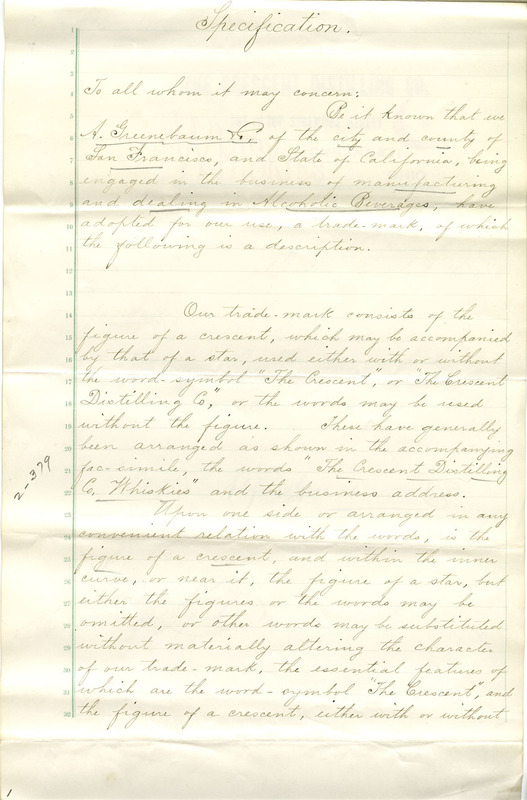 Specification.
To all whom it may concern:
Be it known that we
A. Greenebaum & Co. of the city and county of
San Francisco, and State of California, being
engaged in the business of manufacturing
and dealing in Alcoholic Beverages, have
adopted for our use, a trade-mark, of which
the following is a description.
Our trade-mark consists of the
figure of a crescent, which may be accompanied
by that of a star, used either with or without
the word-symbol "The Crescent", or "The Crescent
Distilling Co," or the words may be used
without the figure. These have generally
been arranged as shown in the accompanying
fac-simile, the words "The Crescent Distilling
Co, Whiskies" and the business address.
Upon one side or arranged in any
convenient relation with the words, is the
figure of a crescent, and within the inner
curve, or near it, the figure of a star, but
either the figures or the words may be
omitted, or other words may be substituted
without materially altering the character
of our trade-mark, the essential features of
which are the word-symbol "The Crescent", and
the figure of a crescent, either with or without
2-379
1